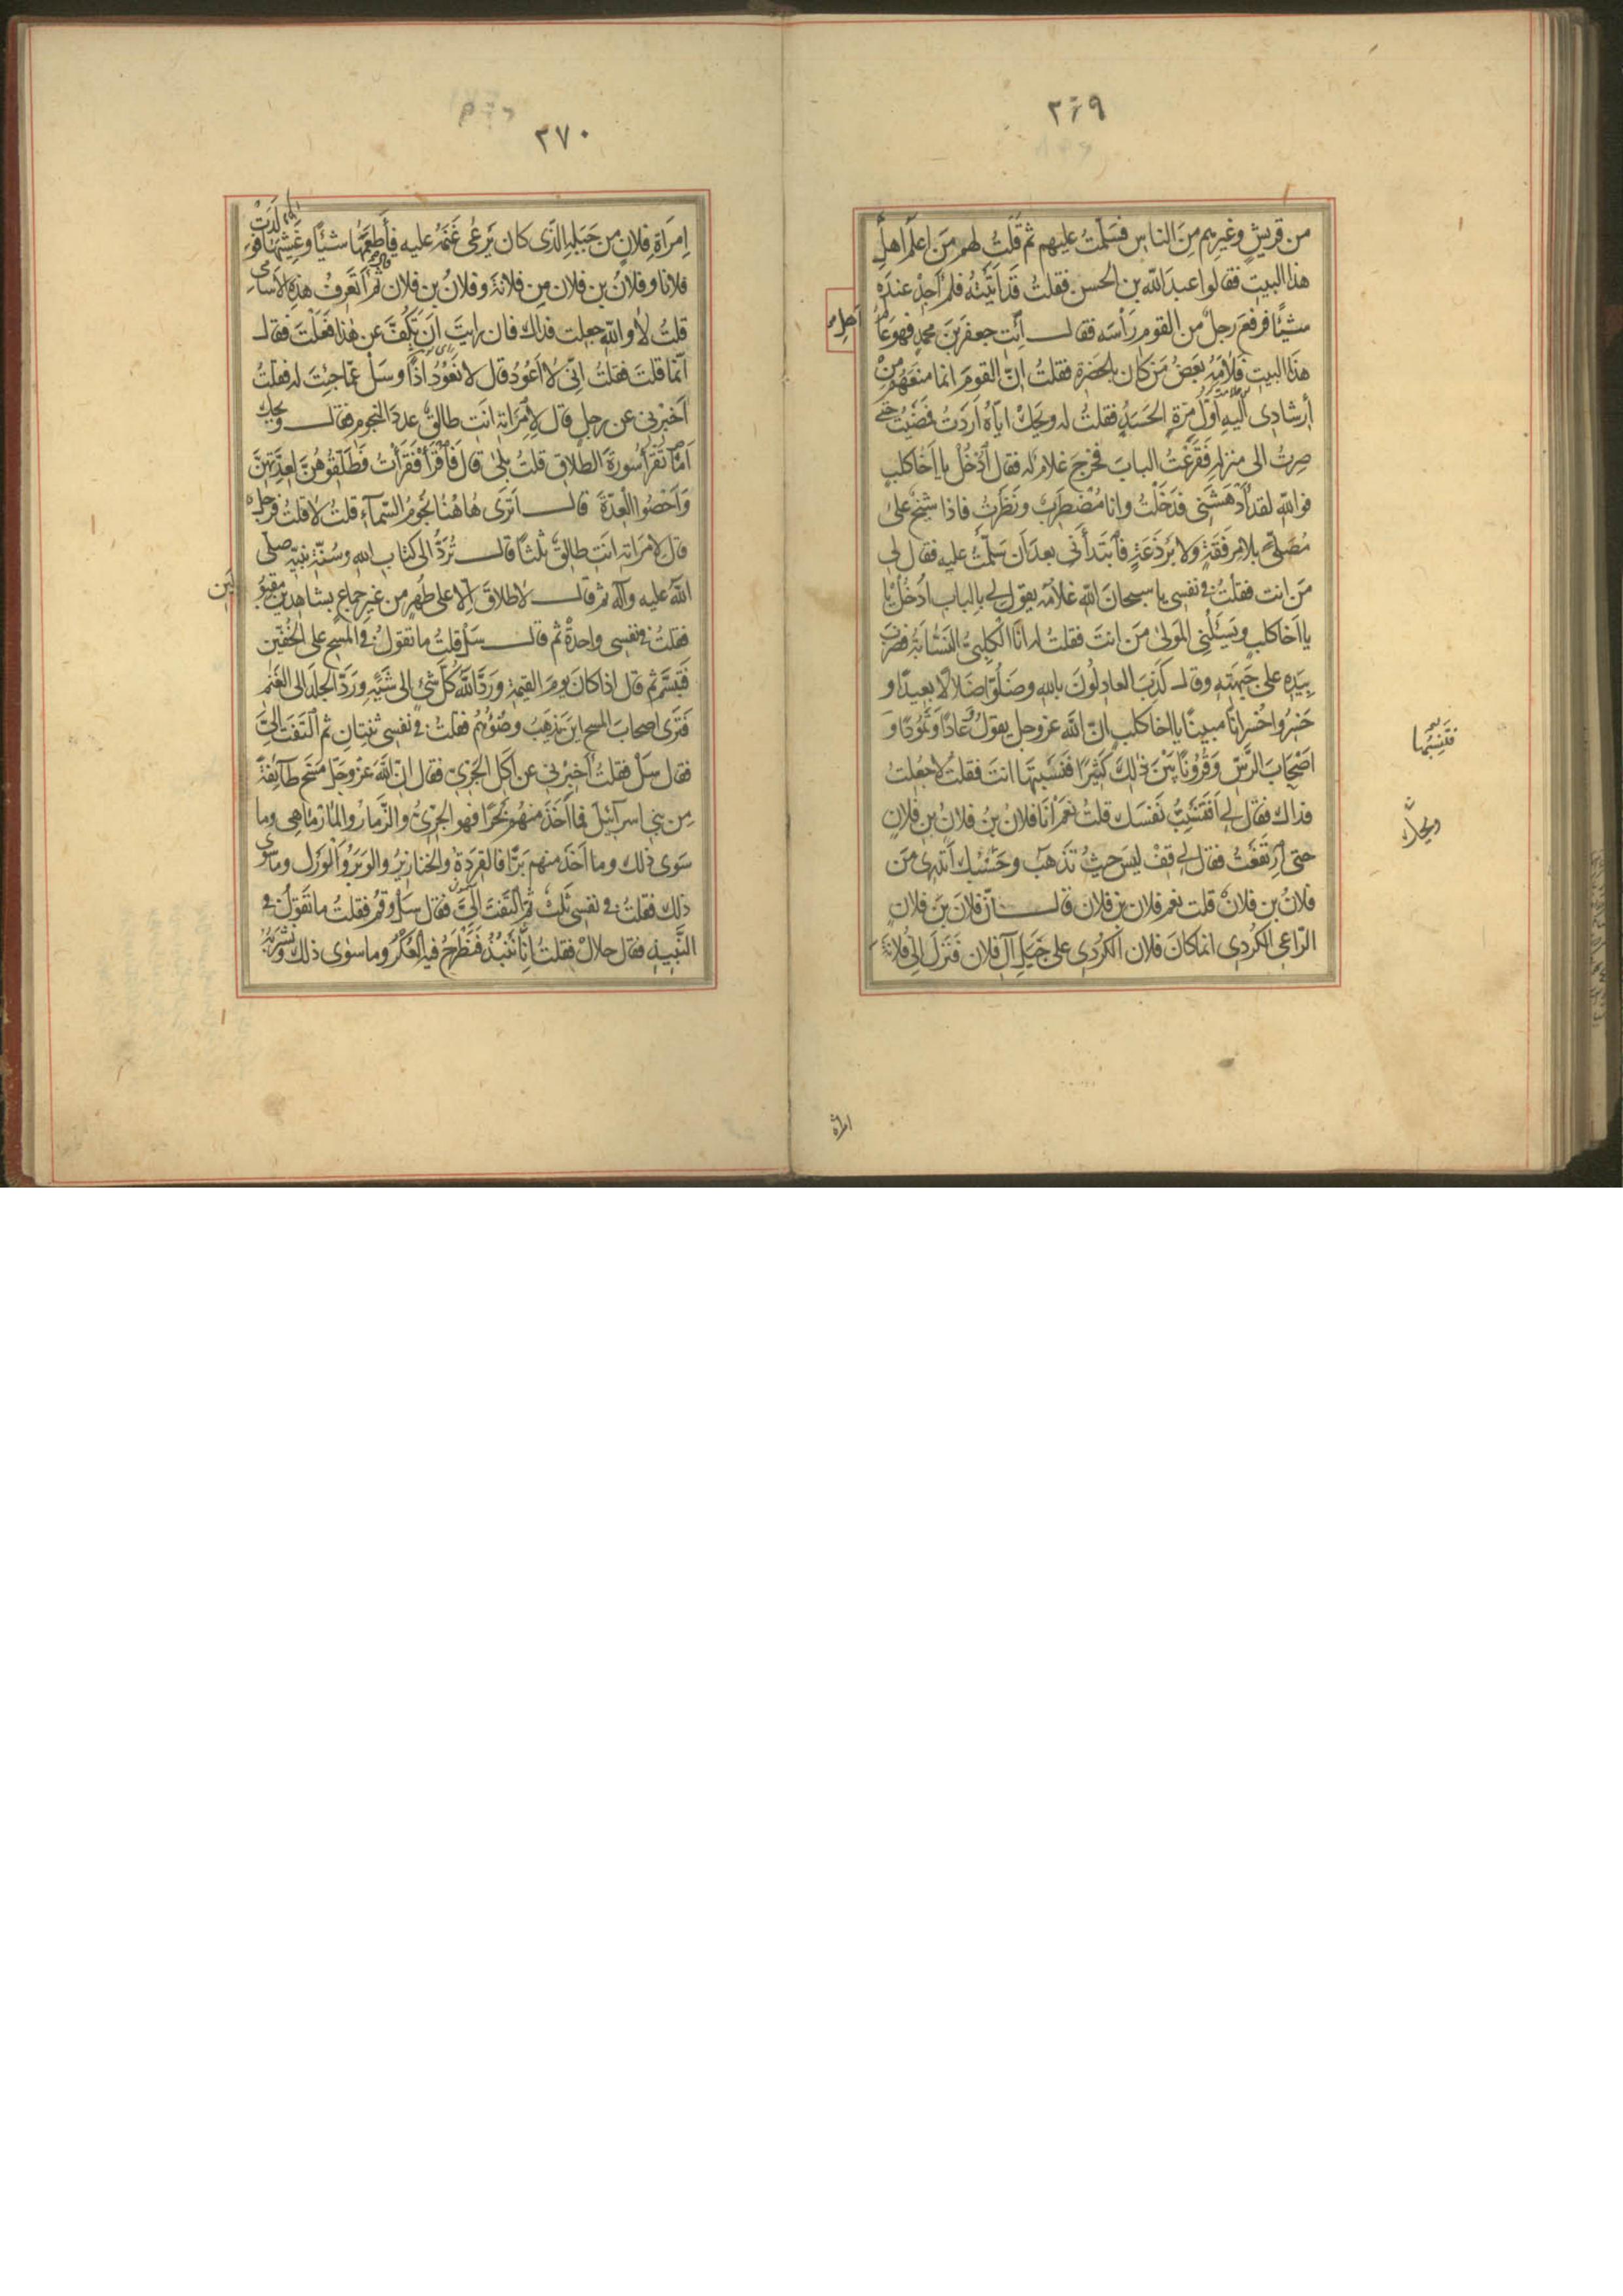 ٢٦٩
من قريشٍ وغيرهم مِنَ الناسِ فسَلّمتُ عليهم ثم قُلتُ لهم مَن اعلَمُ اَهلِ
هذا البيتِ فقالوا عبدَ اللّه بن الحسن فقلتُ قَد اَتَيتُه فلم اَجِدْ عندَه
شيئًا فرفَعَ رجلٌ من القوم رَأسَه فقال اِئتِ جعفرَ بنَ محمدٍ فهو عالمُ
اَهلِ
هذا البيتِ فلامَهُ بَعضُ مَن كان بالحَضرَة فقلتُ انّ القومَ انما منعَهُم مِن
اِرشادى اليه اَوّلَ مَرّةٍ الحَسَدُ فقلتُ له ويحَكَ اِيّاهُ اَرَدتُ فمَضَيتُ حتى
صِرتُ الى منزلِه فقَرَعتُ البابَ فخرجَ غلامٌ له فقال اُدخُلْ يا اَخا كلبٍ
فواللّهِ لقد اَدهَشَنى فدَخَلتُ وانا مُضطَرِبٌ ونَظَرتُ فاذا شيخٌ على
مُصَلّى بلا مِرفَقَةٍ ولا بَرذَعَةٍ فابتَدأَنى بعدَ اَن سَلّمتُ عليه فقال لى
مَن انت فقلتُ فى نفسى يا سبحانَ اللّهِ غلامُه يقول لى بالباب اُدخُل يا
يا اَخا كلبٍ ويَسئَلُنى المَولى مَن انتَ فقلتُ له انَا الكلبىُّ النسّابَةُ فضَرَبَ
بيَدِه على جَبهَتِه وقال كَذَبَ العادِلُونَ باللهِ وضَلّوا ضَلالًا بعيدًا و
خَسِرُوا خُسرانًا مبينًا يا اخا كلبٍ انّ اللّه عز وجل يقولُ وَعادًا وَثَمُودًا وَ
اَصحابَ الرَّسّ وَقُرُونًا بَينَ ذلِكَ كَثِيرًا فتَنسِبُها انتَ فقلتُ لا جُعِلتُ
فتنسبها
فداك فقال لى اَفتَنسِبُ نَفسَك قلتُ نعم اَنا فلانُ بنُ فلانِ بنِ فلانٍ
حتى اِرتَفَعتُ فقال لى قِفْ ليسَ حيثُ تَذهَب ويحَك اَتدرى مَن
ويحك
فلانُ بن فلانٍ قلت نعم فلان بن فلان قال انّ فلانَ بنَ فلانٍ
الرّاعى الكُردِى انما كانَ فلان الكُردى على جَبَلِ آلِ فلان فنَزَلَ الى فُلانَةَ
امراة
٢٧٠
اِمرَاةِ فلانٍ مِن جَبَلِه الذى كان يَرعى غَنَمَهُ عليه فاَطعَمَها شيئًا وغَشِيَها فوَلَدَتْ
فلانا وفلانُ بن فلان مِن فلانَةَ وفلانُ بن فلان ثم قال اَتَعرِفُ هذه الاَسامى
قلتُ لا واللّهِ جعلت فداك فان رايتَ اَن تَكُفَّ عن هذا فعَلتَ فقال
اِنّما قلتَ فقلتُ فقلتُ اِنّى لا اَعُودُ قال لا نَعُودُ اِذًا وسَلْ عمّا جِئتَ له فقلتُ
اَخبِرنى عن رجلٍ قال لامرَاتِه انتِ طالقٌ عددَ النجوم فقال ويحك
اَما تَقرَأ سُورَةَ الطلاقِ قلتُ بلى قال فاقرَأ فقَرَأتُ فَطَلِّقُوهُنَّ لِعِدَّتِهِنَّ
وَاَحصُوا العِدَّةَ قال اَتَرى هاهُنا نُجُومَ السّمآءِ قلتُ لا قلتُ فرَجلٌ
قال لامرَاتِه انتِ طالقٌ ثلثًا قال تُرَدُّ الى كتابِ اللهِ وسُنّةِ نبيّه صلى
اللّهُ عليه وآله ثم قال لا طلاقَ اِلا على طُهرٍ من غيرِ جماعٍ بشاهِدَينِ مقبُو
لَين
فقلتُ فى نفسى واحدةٌ ثم قال سَلْ قلتُ ما تقولُ فى المَسحِ على الخُفّين
فتَبَسَّمَ ثم قال اذا كان يومَ القيمةِ ورَدَّ اللّهُ كُلَّ شىءٍ الى شَيئِهِ ورَدّ الجلدَ الى الغَنَمِ
فتَرى اَصحابَ المسحِ اينَ يَذهَبُ وضُوءُهُم فقلتُ فى نفسى ثنتانِ ثم التَفَتَ الىَّ
فقال سَلْ فقلتُ اَخبِرنى عن اَكلِ الجِرّىّ فقال انّ اللّهَ عزّ وجلّ مَسَخَ طآئِفَةً
مِن بنى اسرآئيلَ فما اَخَذَ منهُم بَحرًا فهو الجِرّىُّ والزّمّارُ والمارماهى وما
سَوى ذلك وما اَخَذَ منهم بَرًّا فالقِرَدَةُ والخنازيرُ والوَبَرُ والوَرَل وما سوى
ذلك فقلتُ فى نفسى ثلثٌ ثم التَفَتَ الىَّ فقال سَلْ وقُم فقلتُ ما تَقُولُ فى
النَّبيذِ فقال حلالٌ فقلتُ اِنّا نَنبِذُ فنَطرَحُ فيه العَكَرَ وما سوى ذلك ونَشرَبُهُ